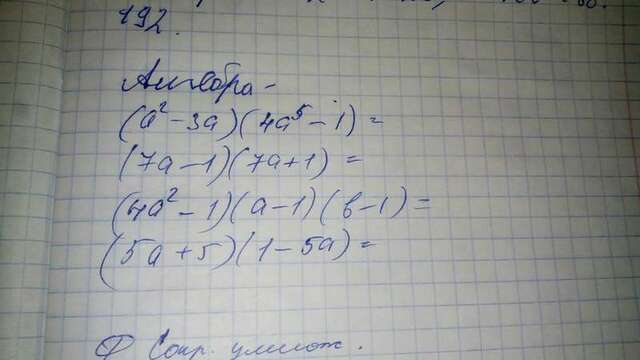 192.
Алгебра -
(a² - 3a)(4a⁵ - 1) =
(7a - 1)(7a + 1) =
(4a² - 1)(a - 1)(b - 1) =
(5a + 5)(1 - 5a) =
Ф Сокр. умнож.